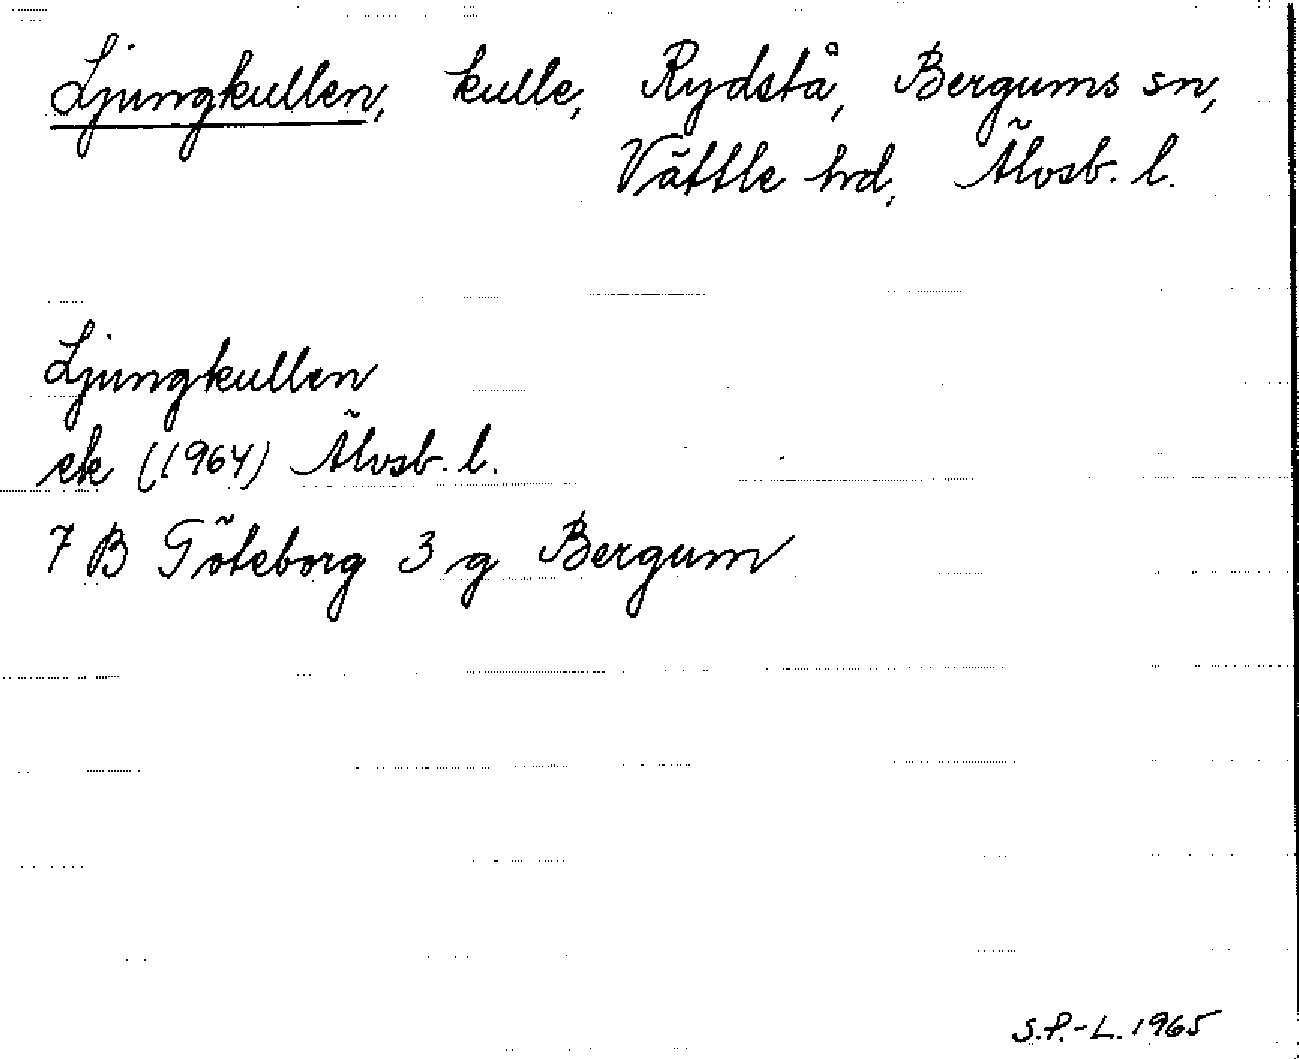 Ljungkullen, kulle, Rydstå, Bergums sn,
Vättle hd, Älvsb. l.
Ljungkullen
ek (1964) Älvsb. l.
7 B Göteborg 3 g Bergum
S.P.-L. 1965